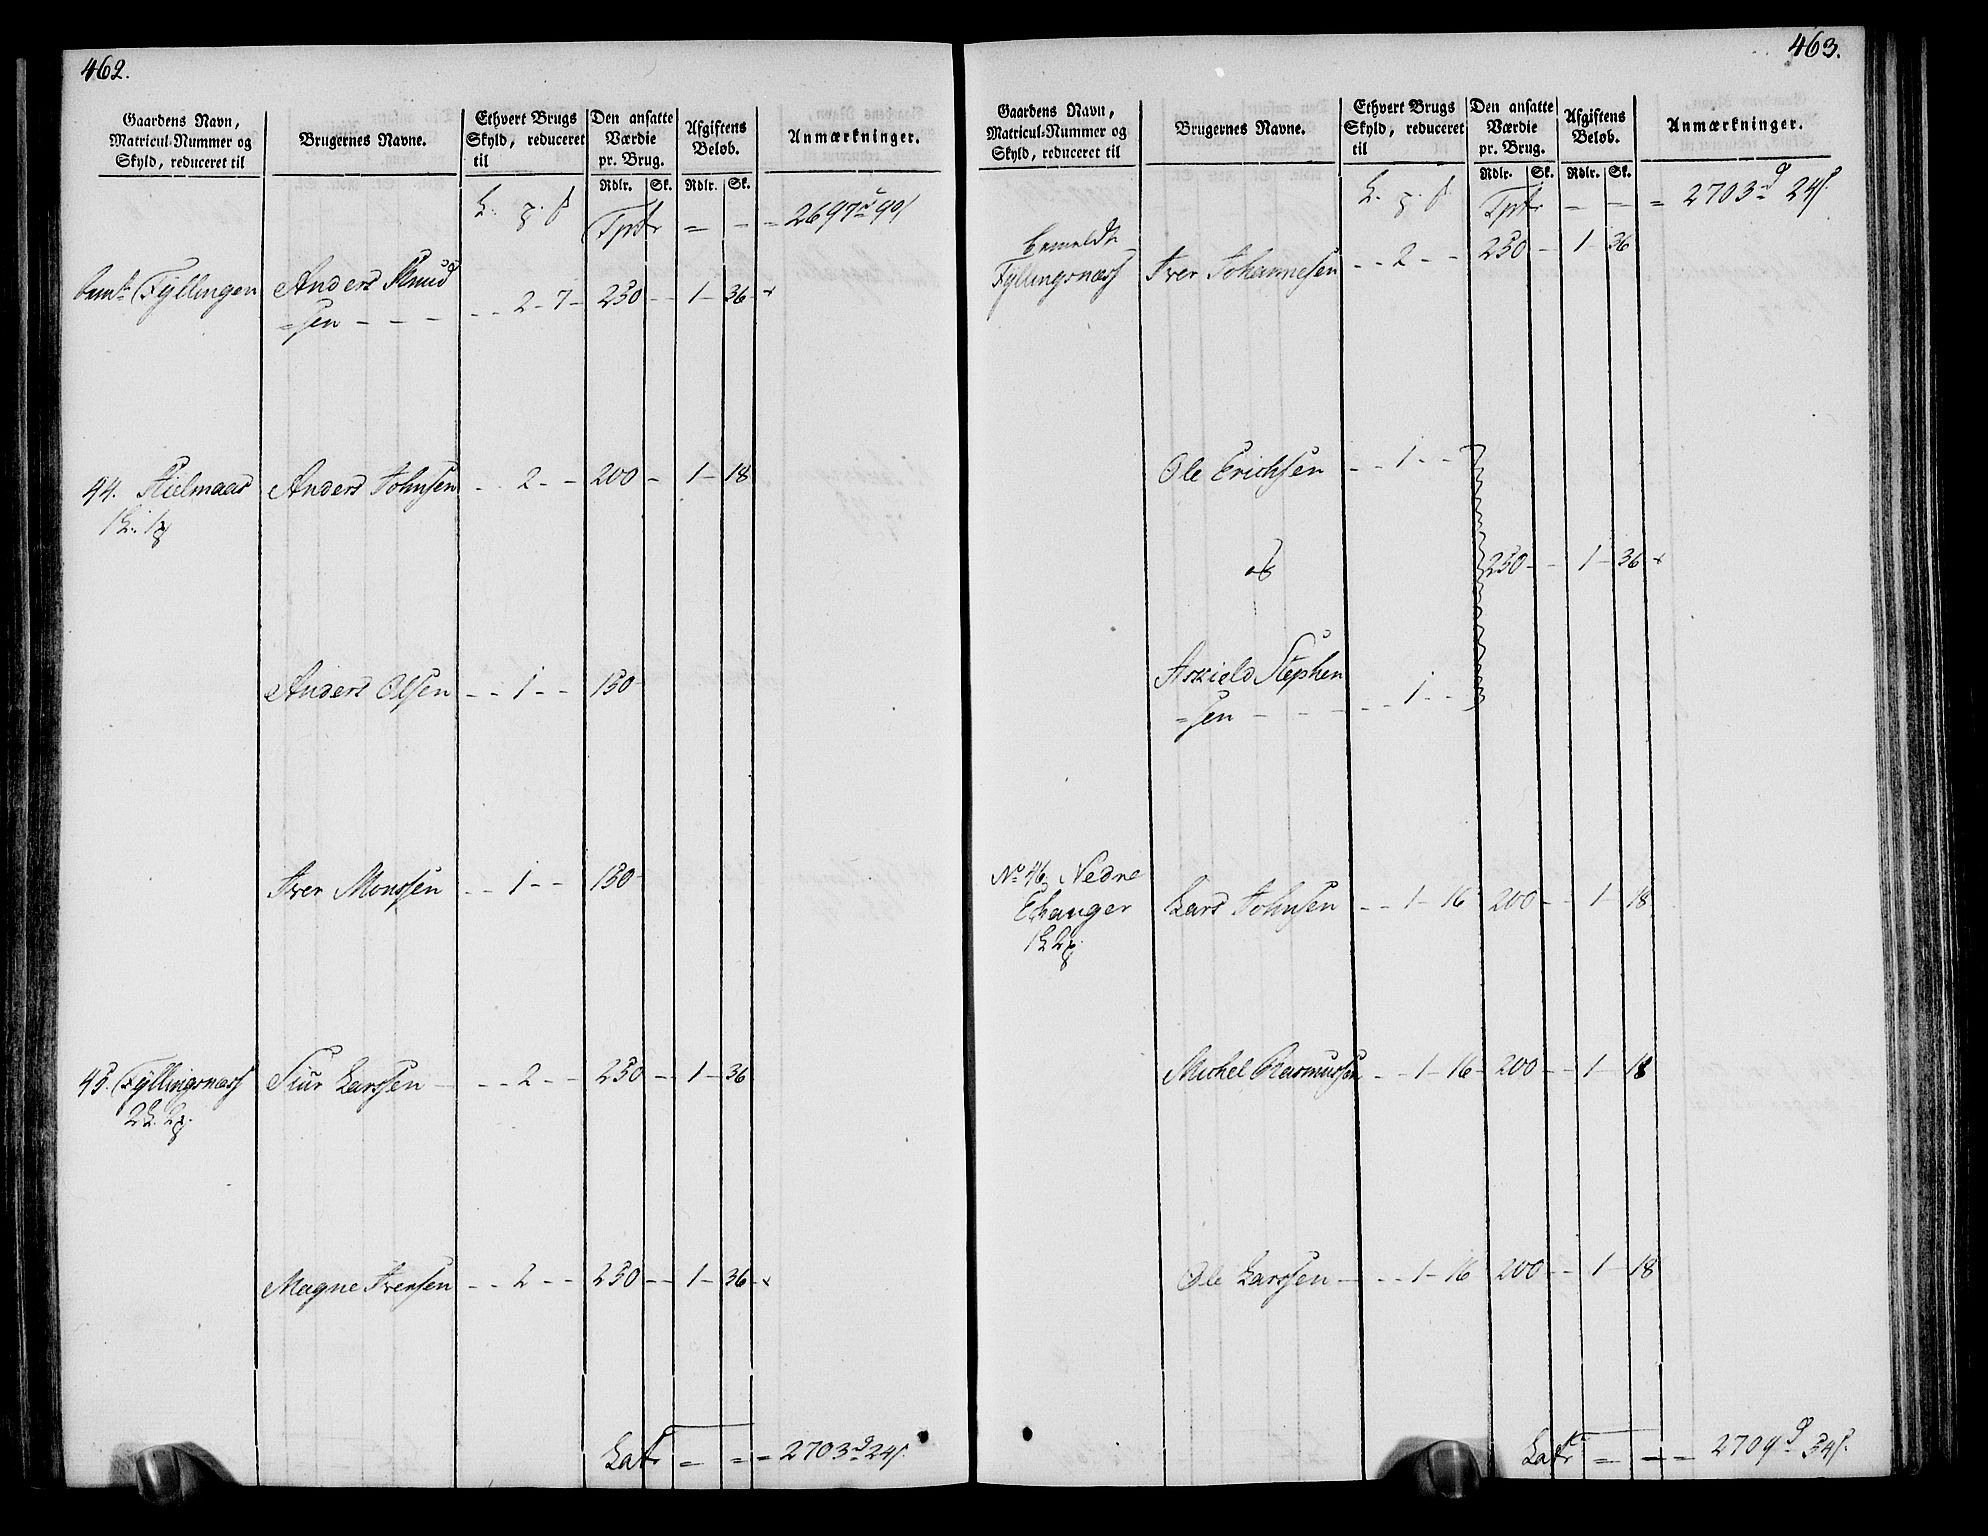 462.
Gaardens Navn, Matricul-Nummer og Skyld, reduceret til | Brugernes Navne. | Ethvert Brugs Skyld, reduceret til | Den ansatte Værdie pr. Brug. | Afgiftens Beløb. | Anmærkninger.
Rdlr. Sk. Rdlr. Sk.
Tptr = - = 2697
Fyllingen Anders Knud
=sen - - - - - 2 - 7 - 250 - - 1 - 36 -
44. Kielmaas Anders Johnsen - - 2 - - 200 - 1 - 18
Anders Olsen - - 1 - - 150 -
Iver Monssen - - 1 - - 150 -
45. Fyllingsnæss Siur Larssen - - - 2 - - 250 - - 1 - 36
Magne Iversen - - 2 - - 250 - - 1 - 36 -
Latr = = = 2703 24
463.
Gaardens Navn, Matricul-Nummer og Skyld, reduceret til | Brugernes Navne. | Ethvert Brugs Skyld, reduceret til | Den ansatte Værdie pr. Brug. | Afgiftens Beløb. | Anmærkninger.
Rdlr. Sk. Rdlr. Sk.
Tptr = - = 2703 24
bemeldte
Fyllingsnæss Iver Johannesen - - 2 - - 250 - 1 - 36
Ole Erichsen - - 1 - -
og 250 - - 1 - 36
Askield Stephen
=sen - - - - - 1 - -
No 46. Nedre
Echanger Lars Johnsen - - 1 - 16 200 - - 1 - 18
Michel Rasmussen - - 1 - 16 - 200 - - 1 - 18
Ole Larssen - - - 1 - 16 200 - - 1 - 18
Latr = - = 2709 34